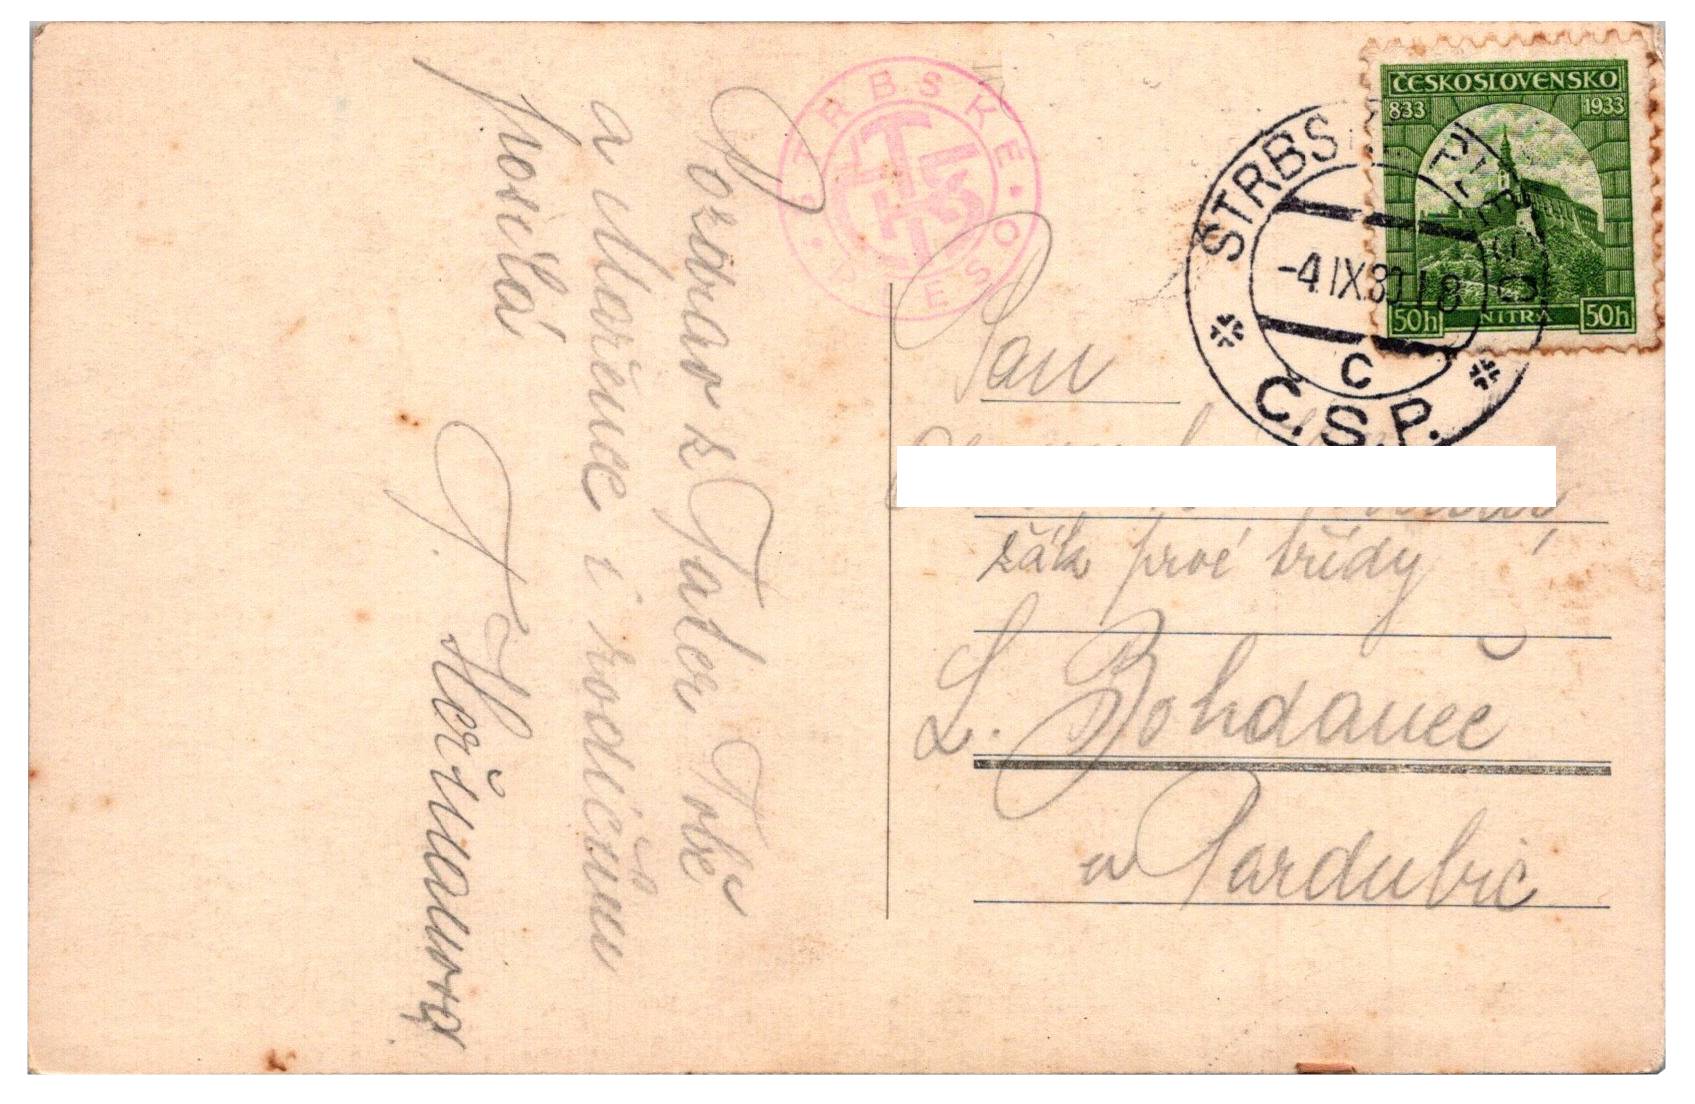 Pozdrav z Tater Tobě
a Mařence i rodičům
posílá
J. Heřmanová
ŠTRBSKÉ
PLESO
ČESKOSLOVENSKO
833 1933
50h NITRA 50h
ŠTRBS
-4.IX.3 18
c
Č.S.P.
Pan
žák prvé třídy
L. Bohdaneč
u Pardubic